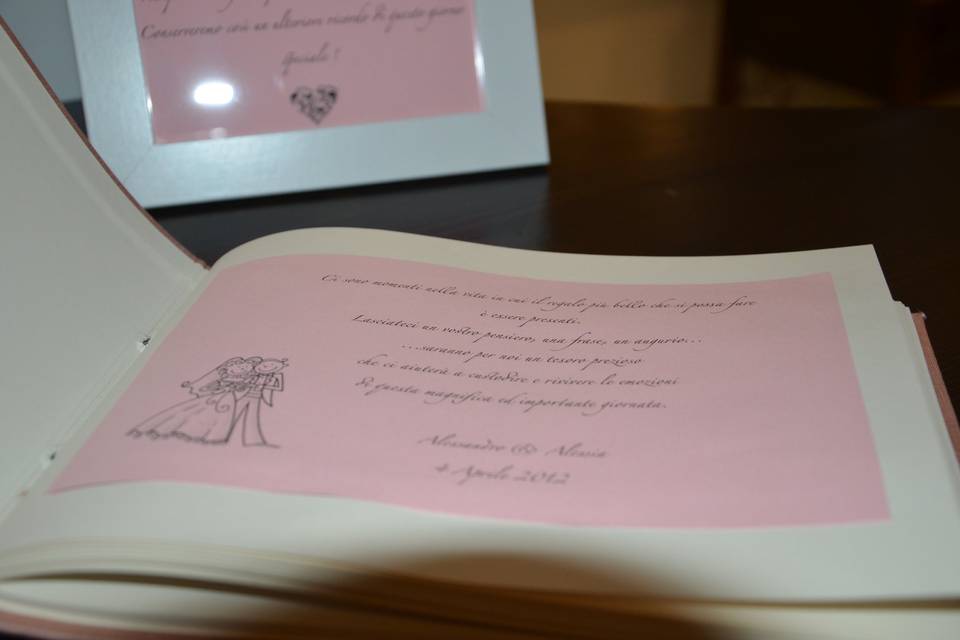 Conserveremo così un ulteriore ricordo di questo giorno
speciale !
Ci sono momenti nella vita in cui il regalo più bello che si possa fare
è essere presenti.
Lasciateci un vostro pensiero, una frase, un augurio...
...saranno per noi un tesoro prezioso
che ci aiuterà a custodire e rivivere le emozioni
di questa magnifica ed importante giornata.
Alessandro & Alessia
4 Aprile 2012